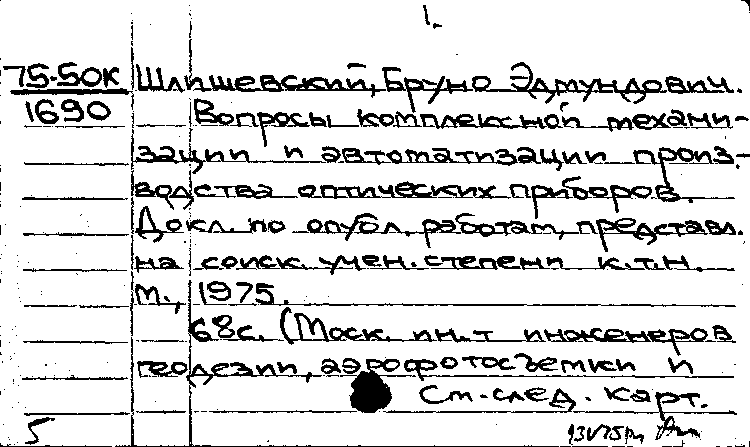 1.
75-50К Шлишевский, Бруно Эдмундович.
1690 Вопросы комплексной механи-
зации и автоматизации произ-
водства оптических приборов.
Докл. по опубл. работам, представл.
на соиск. учен. степени к.т.н.
М., 1975.
68с. (Моск. ин-т инженеров
геодезии, аэрофотосъемки и
См. след. карт.
5